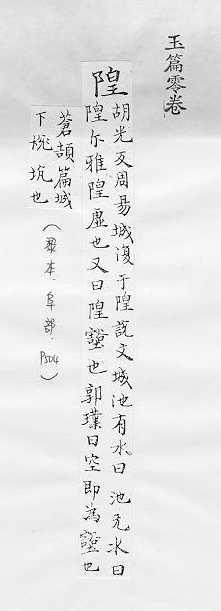 玉篇零卷
隍 胡光反周易城復于隍說文城池有水曰池无水曰
隍尔雅隍虛也又曰隍壑也郭璞曰空即為壑也
蒼頡篇城
下坑也
(黎本 阜部 P504)